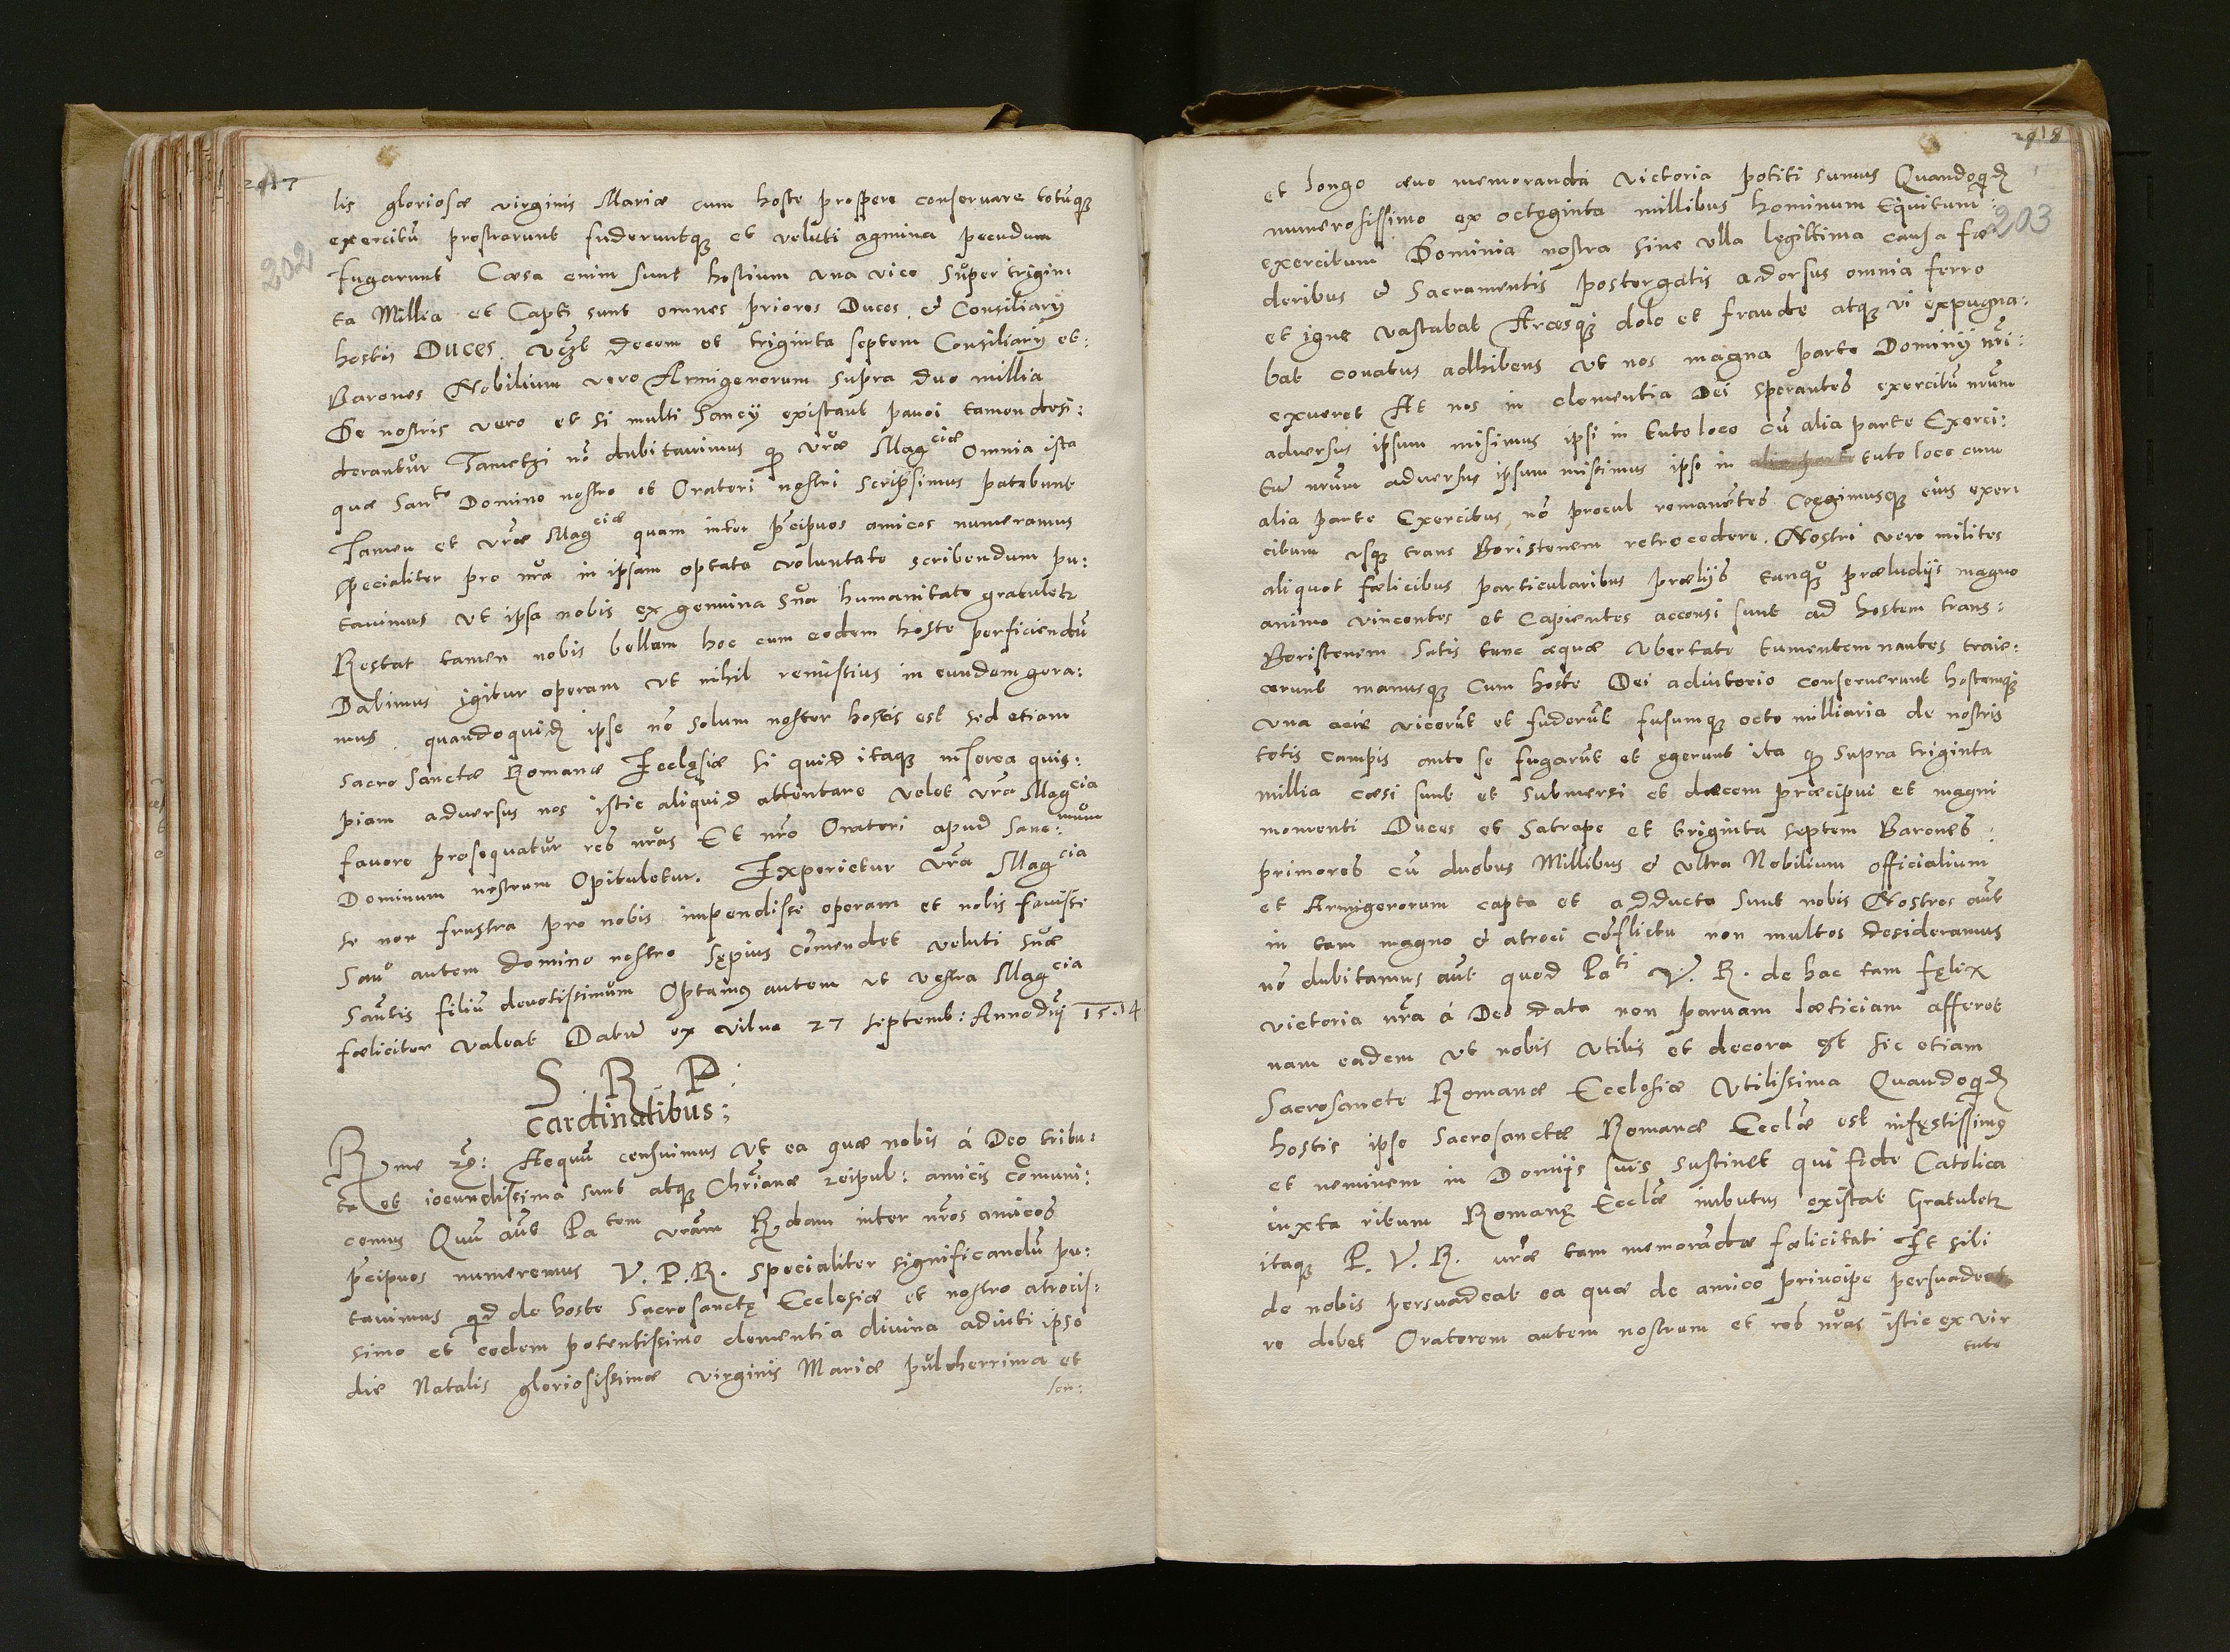 2917
202
lis gloriosæ virginis Mariæ cum hoste prospere conseruare totūq3
exercitū prostrarunt fuderuntq3 et veluti agmina pecudum
fugarunt Cæsa enim sunt hostium vna vice super trigin
ta Millia et Capti sunt omnes priores Duces & Consiliarij
hostis Duces. decem et triginta septem Consiliarij et:
Barones Nobilium vero Armigerorum supra duo millia
De nostris vero et si multi Sancij existant pauci tamen desi:
derantur Tametzi nō dubitauimus q3 vr̄æ Magciæ Omnia ista
quæ Santo Domino nostro et Oratori nostri scripsimus patebunt
Tamen et vr̄æ Magciæ quam inter p̄cipuos amicos numeramus
specialiter pro nr̄a in ipsam optata voluntate scribendum pu:
tauimus vt ipsa nobis ex genuina sua humanitate gratuletr
Restat tamen nobis bellum hoc cum eodem hoste perficiendū
Dabimus igitur operam vt nihil remissius in eundem gera:
mus. quandoquid ipse nō solum noster hostis est sed etiam
sacro sanctæ Romanæ Ecclęsiæ si quid itaq3 interea quis:
piam aduersus nos istic aliquid attentare volet vr̄a Magcia
fauore prosequatur res nr̄as Et nr̄o Oratori apud Sanc:mum
Dominum nostrum Opituletur. Experietur vr̄a Magcia
se non frustra pro nobis impendisse operam et nobis fauisse
Sano autem domino nostro sępius cōmendet veluti suæ
Sāntis filiū deuotissimum Optamus autem vt vestra Magcia
fæliciter valeat Datū ex vilna 27 septemb: Anno dnī 15.14
S. R. P.
cardinalibus;
Rme Aequū censuimus vt ea quæ nobis á Deo tribu:
ta et iocundissima sunt atq3 Chr̄ianæ reipub: amicis cōmuni:
cemus Quū aūt Patem vr̄am Rdam inter nr̄os amicos
p̄cipuos numeremus V. P. R. specialiter significandū pu:
tauimus qd de hoste Sacrosanctę Ecclesiæ et nostro atrocis:
simo et eodem potentissimo clementia diuina adiuti ipso
die Natalis gloriosissimæ virginis Mariæ pulcherrima et
lon:
2918
203
et longo æuo memoranda victoria potiti sumus Quandoqd
numerosissimo ex octoginta millibus hominum Equitum:
exercitum Dominia nostra sine vlla lęgittima causa fæ
deribus & Sacramentis postergatis adorsus omnia ferro
et igne vastabat Arcesq3 dolo et fraude atq3 vi expugna:
bat conatus adhibens vt nos magna parte Dominij nr̄i:
exueret At nos in clementia Dei sperantes exercitū nr̄um
aduersus ipsum misimus ipsi in tuto loco cū alia parte Exerci:
tū nr̄um aduersus ipsum misimus ipse in alia parte tuto loco cum
alia parte Exercitus nō procul remanētes Coęgimusq3 eius exer
citum vsq3 trans Boristenem retrocedere. Nostri vero milites
aliquot fælicibus particularibus prælijs tanquā præludijs magno
animo vincentes et Capientes accensi sunt ad hostem trans:
Boristenem satis tunc æquæ vbertate tumentem nantes traie:
cerunt manusq3 Cum hoste Dei adiutorio conseruerunt hostemq3
vna acie vicerūt et fuderūt fusumq3 octo milliaria de nostris
totis campis ante se fugarūt et egerunt ita q3 supra triginta
millia cæsi sunt et submersi et dæcem præcipui et magni
momenti Duces et Satrape et triginta septem Barones:
primores cū duobus Millibus & vltra Nobilium officialium
et Armigerorum capta et adducta sunt nobis Nostros aūt
in tam magno & atroci cōflictu non multos desideramus
nō dubitamus aūt quod Pati V. R. de hac tam fęlix
victoria nr̄a á Deo data non paruam læticiam afferet
nam eadem vt nobis vtilis et decora est sic etiam
Sacrosancte Romanæ Ecclesiæ vtilissima Quandoqd
hostis ipse sacrosanctæ Romanæ Eccl̄æ est infęstissimus
et neminem in Domijs suis sustinet qui fide Catolica
iuxta ritum Romanę Eccl̄æ imbutus existat Gratuletr
itaq3 P. V. R. nr̄æ tam memorādæ fælicitati Et sibi
de nobis persuadeat ea quæ de amico principe persuade
re debet Oratorem autem nostrum et res nr̄as istic ex vir
tute